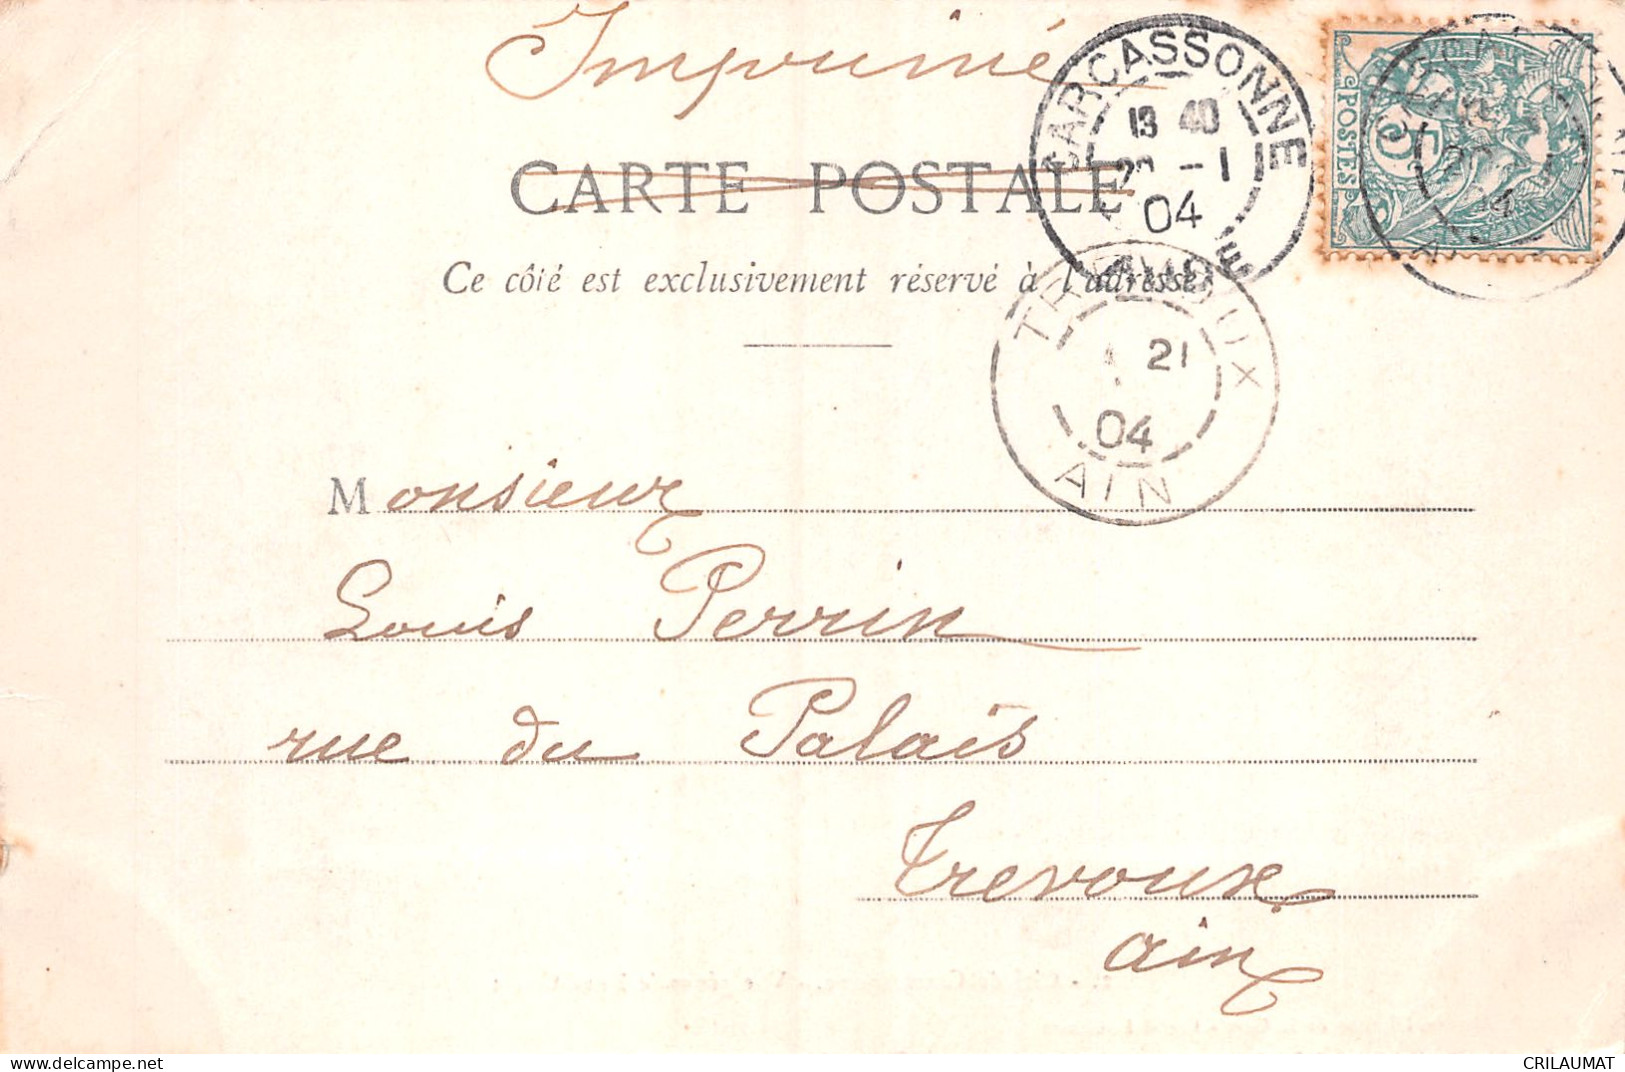 Imprimé
CARTE POSTALE
Ce côté est exclusivement réservé à l'adresse
CARCASSONNE
13 40
20 -1
04
AUDE
POSTES
5
TREVOUX
21
04
AIN
Monsieur
Louis Perrin
rue du Palais
Trevoux
ain
CRILAUMAT